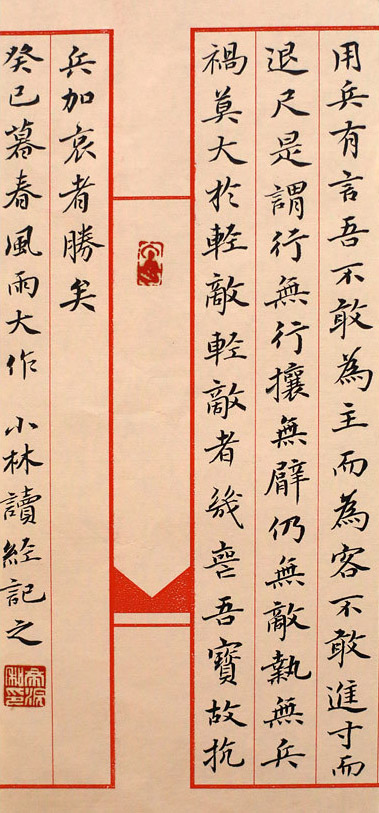 用兵有言吾不敢為主而為客不敢進寸而
退尺是謂行無行攘無臂仍無敵執無兵
禍莫大於輕敵輕敵者幾喪吾寶故抗
兵加哀者勝矣
癸巳暮春風雨大作 小林讀經記之